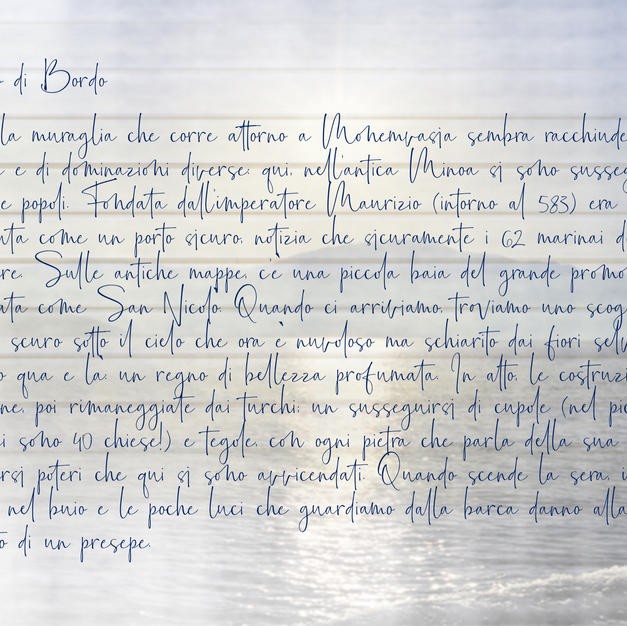 di Bordo
la muraglia che corre attorno a Monemvasia sembra racchiude
e di dominazioni diverse: qui, nell'antica Minoa si sono susseg
e popoli. Fondata dall'imperatore Maurizio (intorno al 583) era
ata come un porto sicuro, notizia che sicuramente i 62 marinai d
re. Sulle antiche mappe, c'è una piccola baia del grande promo
ata come San Nicolò. Quando ci arriviamo, troviamo uno scog
scuro sotto il cielo che ora è nuvoloso ma schiarito dai fiori selv
o qua e là: un regno di bellezza profumata. In alto, le costruzi
ne, poi rimaneggiate dai turchi: un susseguirsi di cupole (nel pic
i sono 40 chiese!) e tegole, con ogni pietra che parla della sua
ersi poteri che qui si sono avvicendati. Quando scende la sera, i
nel buio e le poche luci che guardiamo dalla barca danno alla
to di un presepe.